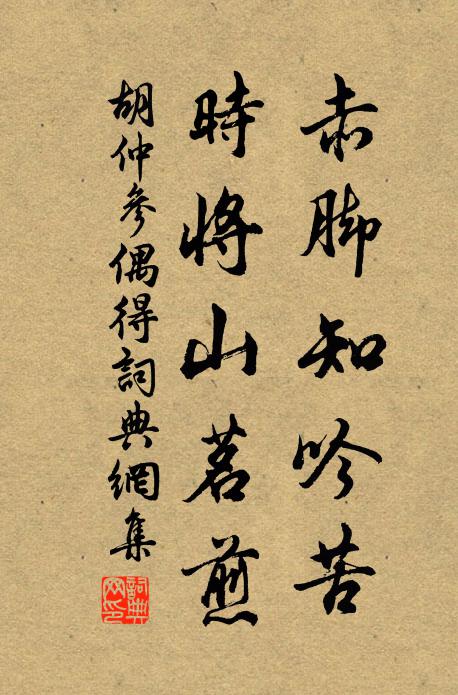 赤脚知吟苦
時將山茗煎
胡仲參偶得詞典網集
詞典網印